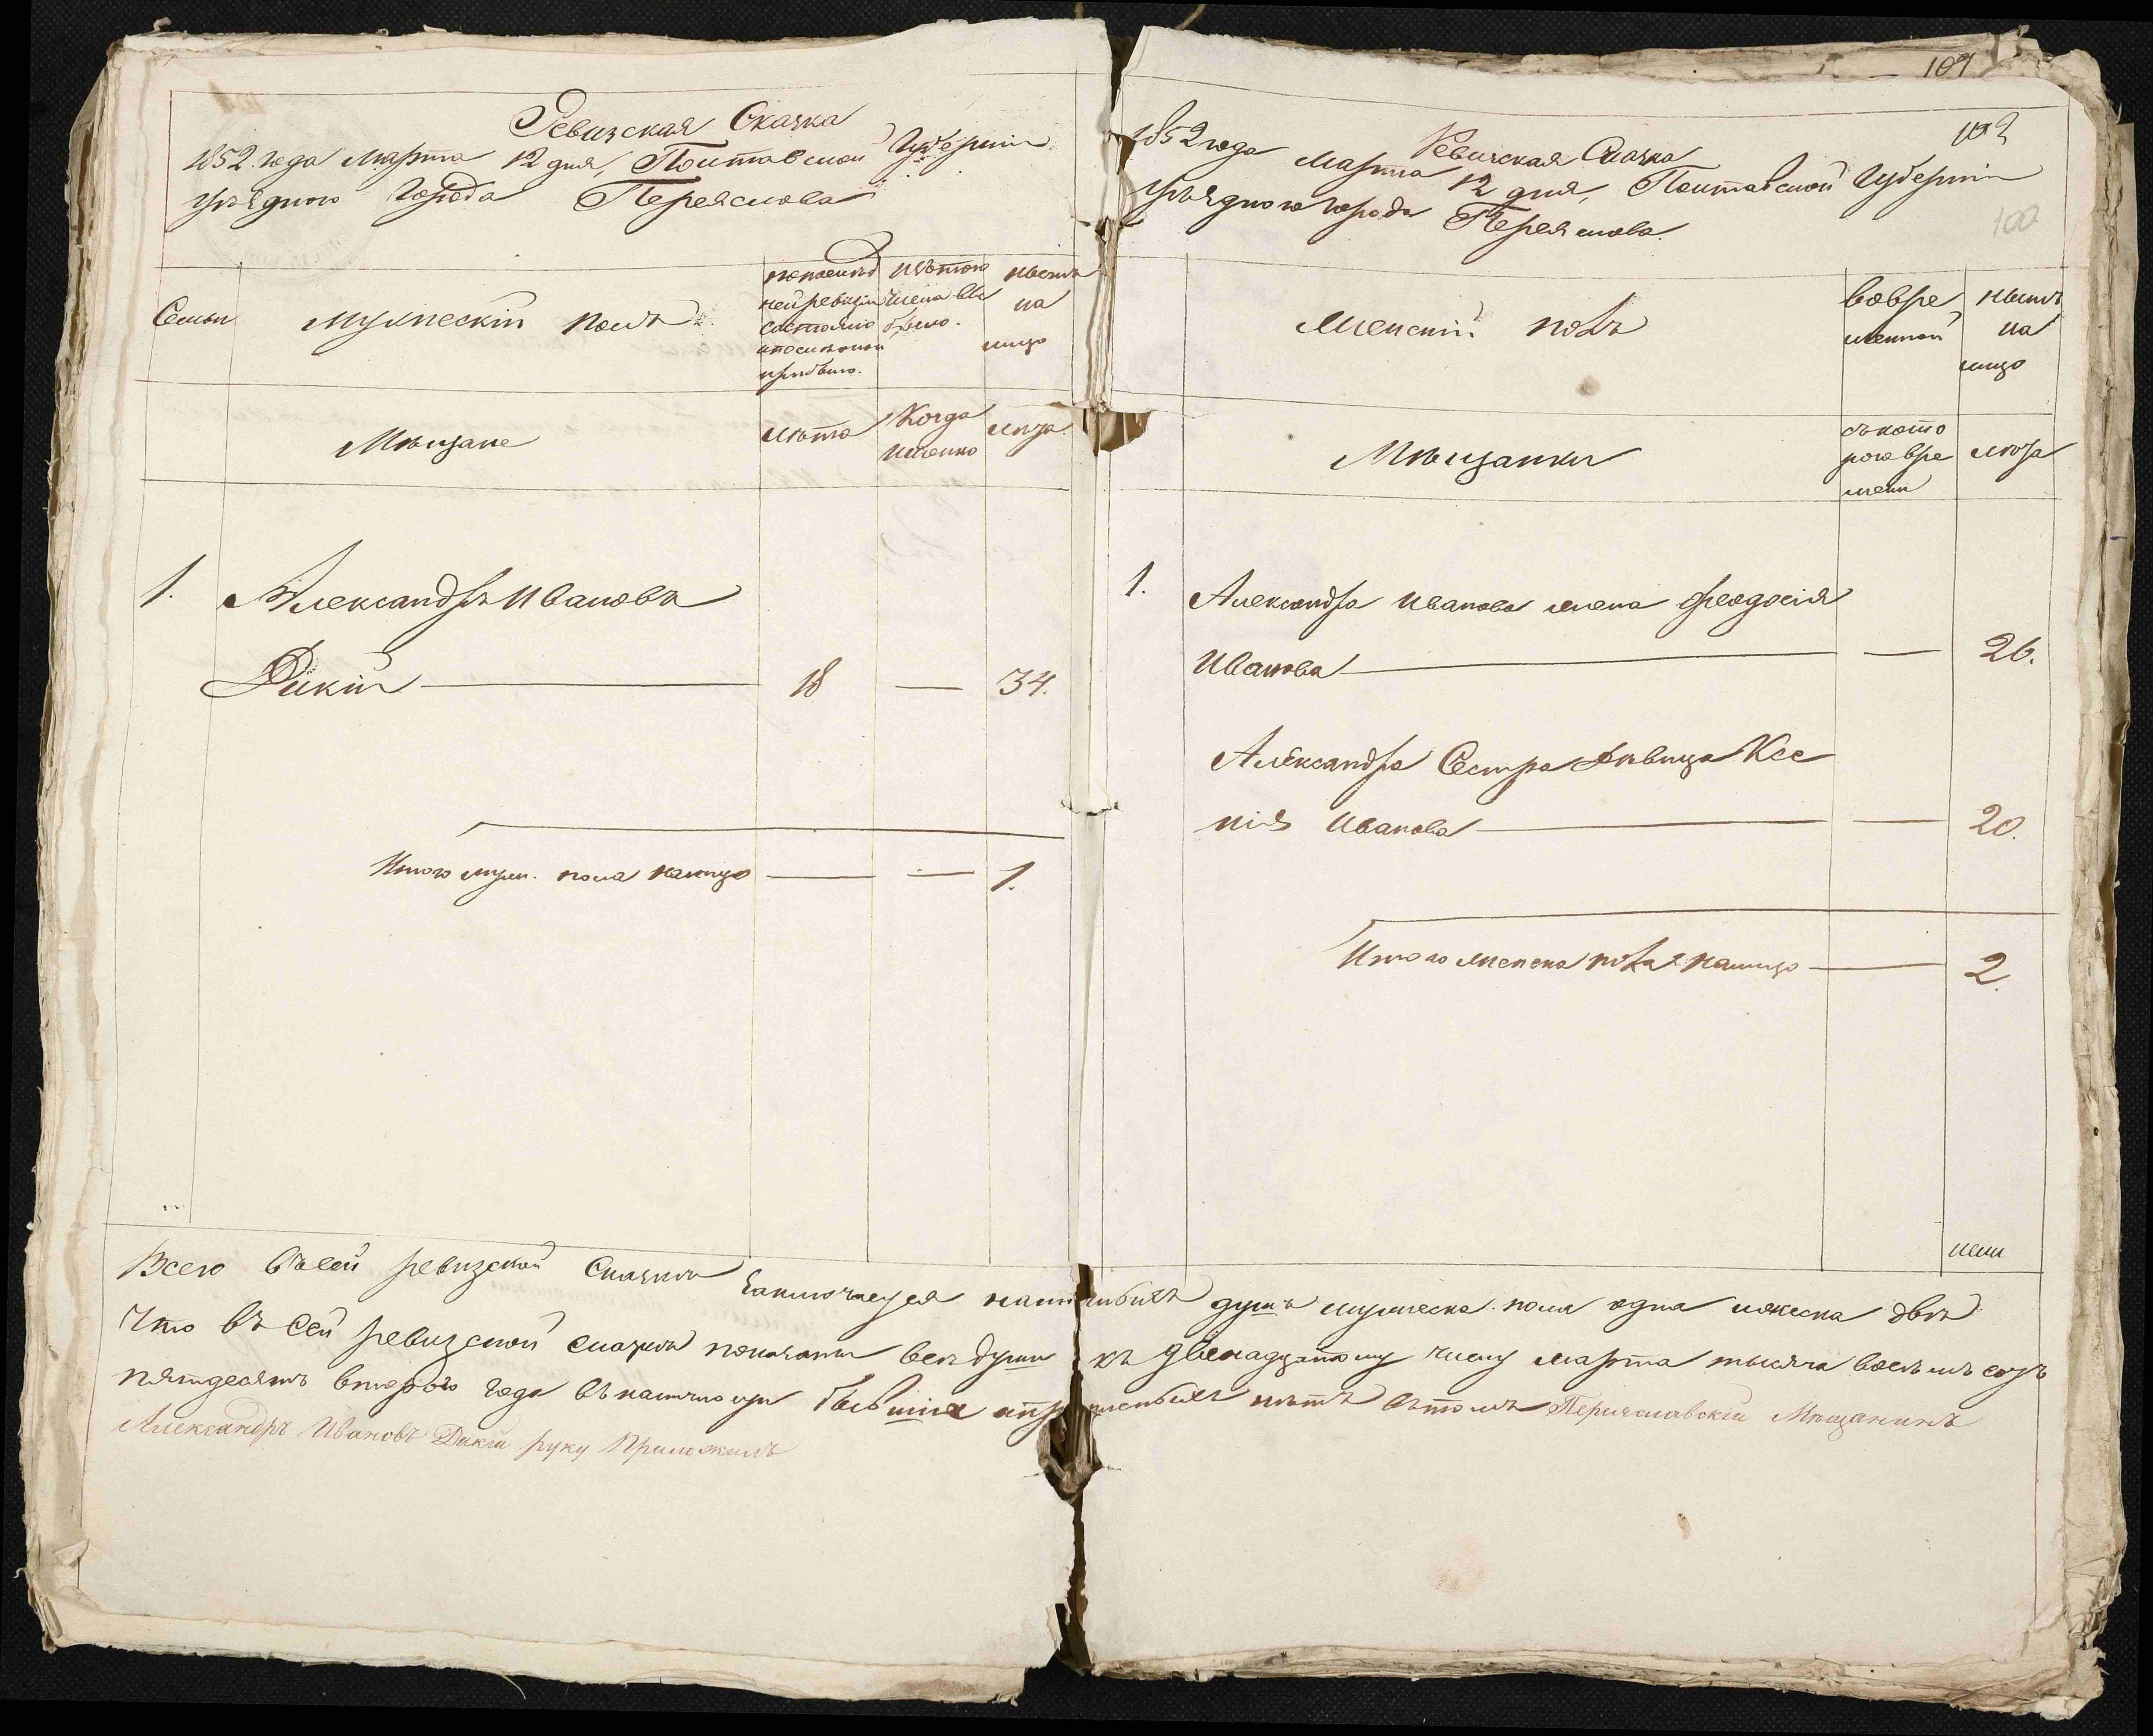 Ревизская Сказка
1852 года Марта 12 дня, Полтавской Губернии
уѣзднаго города Переяслова
Семьи
Мужескій полъ
по послѣд
ней ревизіи
состояло
и послѣ оной
прибыло.
Изъ того
числа вы
было.
Нынѣ
на
лицо
Мѣщане
Лѣта
Когда
именно
Лѣта
1. Александръ Ивановъ
Дикій — 18 — 34.
Итого муж. пола налицо — — 1.
101
102
100
Ревизская Сказка
1852 года Марта 12 дня, Полтавской Губерніи
уѣзднаго города Переяслова.
Женскій полъ
Во вре
менной
Нынѣ
на
лицо
Мѣщанки
съ кото
раго вре
мени
Лѣта
1. Александра Иванова жена Феодосія
Иванова — — 26.
Александра Сестра дѣвица Ксе
нія Иванова — — 20.
Итого женска пола налицо — 2.
Всего въ сей ревизской Сказкѣ заключается наличныхъ душъ мужеска пола одна женска двѣ
Что въ сей ревизской сказкѣ показаны всѣ души къ двенадцатому числу Марта тысяча восемь сотъ
пятдесятъ втораго года въ наличности бывшия и пр нѣтъ въ томъ Переяславскій Мѣщанинъ
Александръ Ивановъ Дикій руку Приложилъ